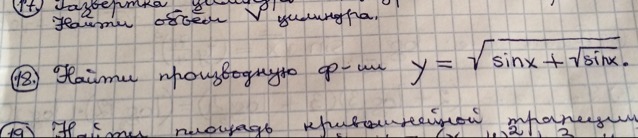 17. Развертка
Найти объём V цилиндра.
18. Найти производную ф-ии y = √(sinx + √sinx).
19) Найти площадь криволинейной трапеции